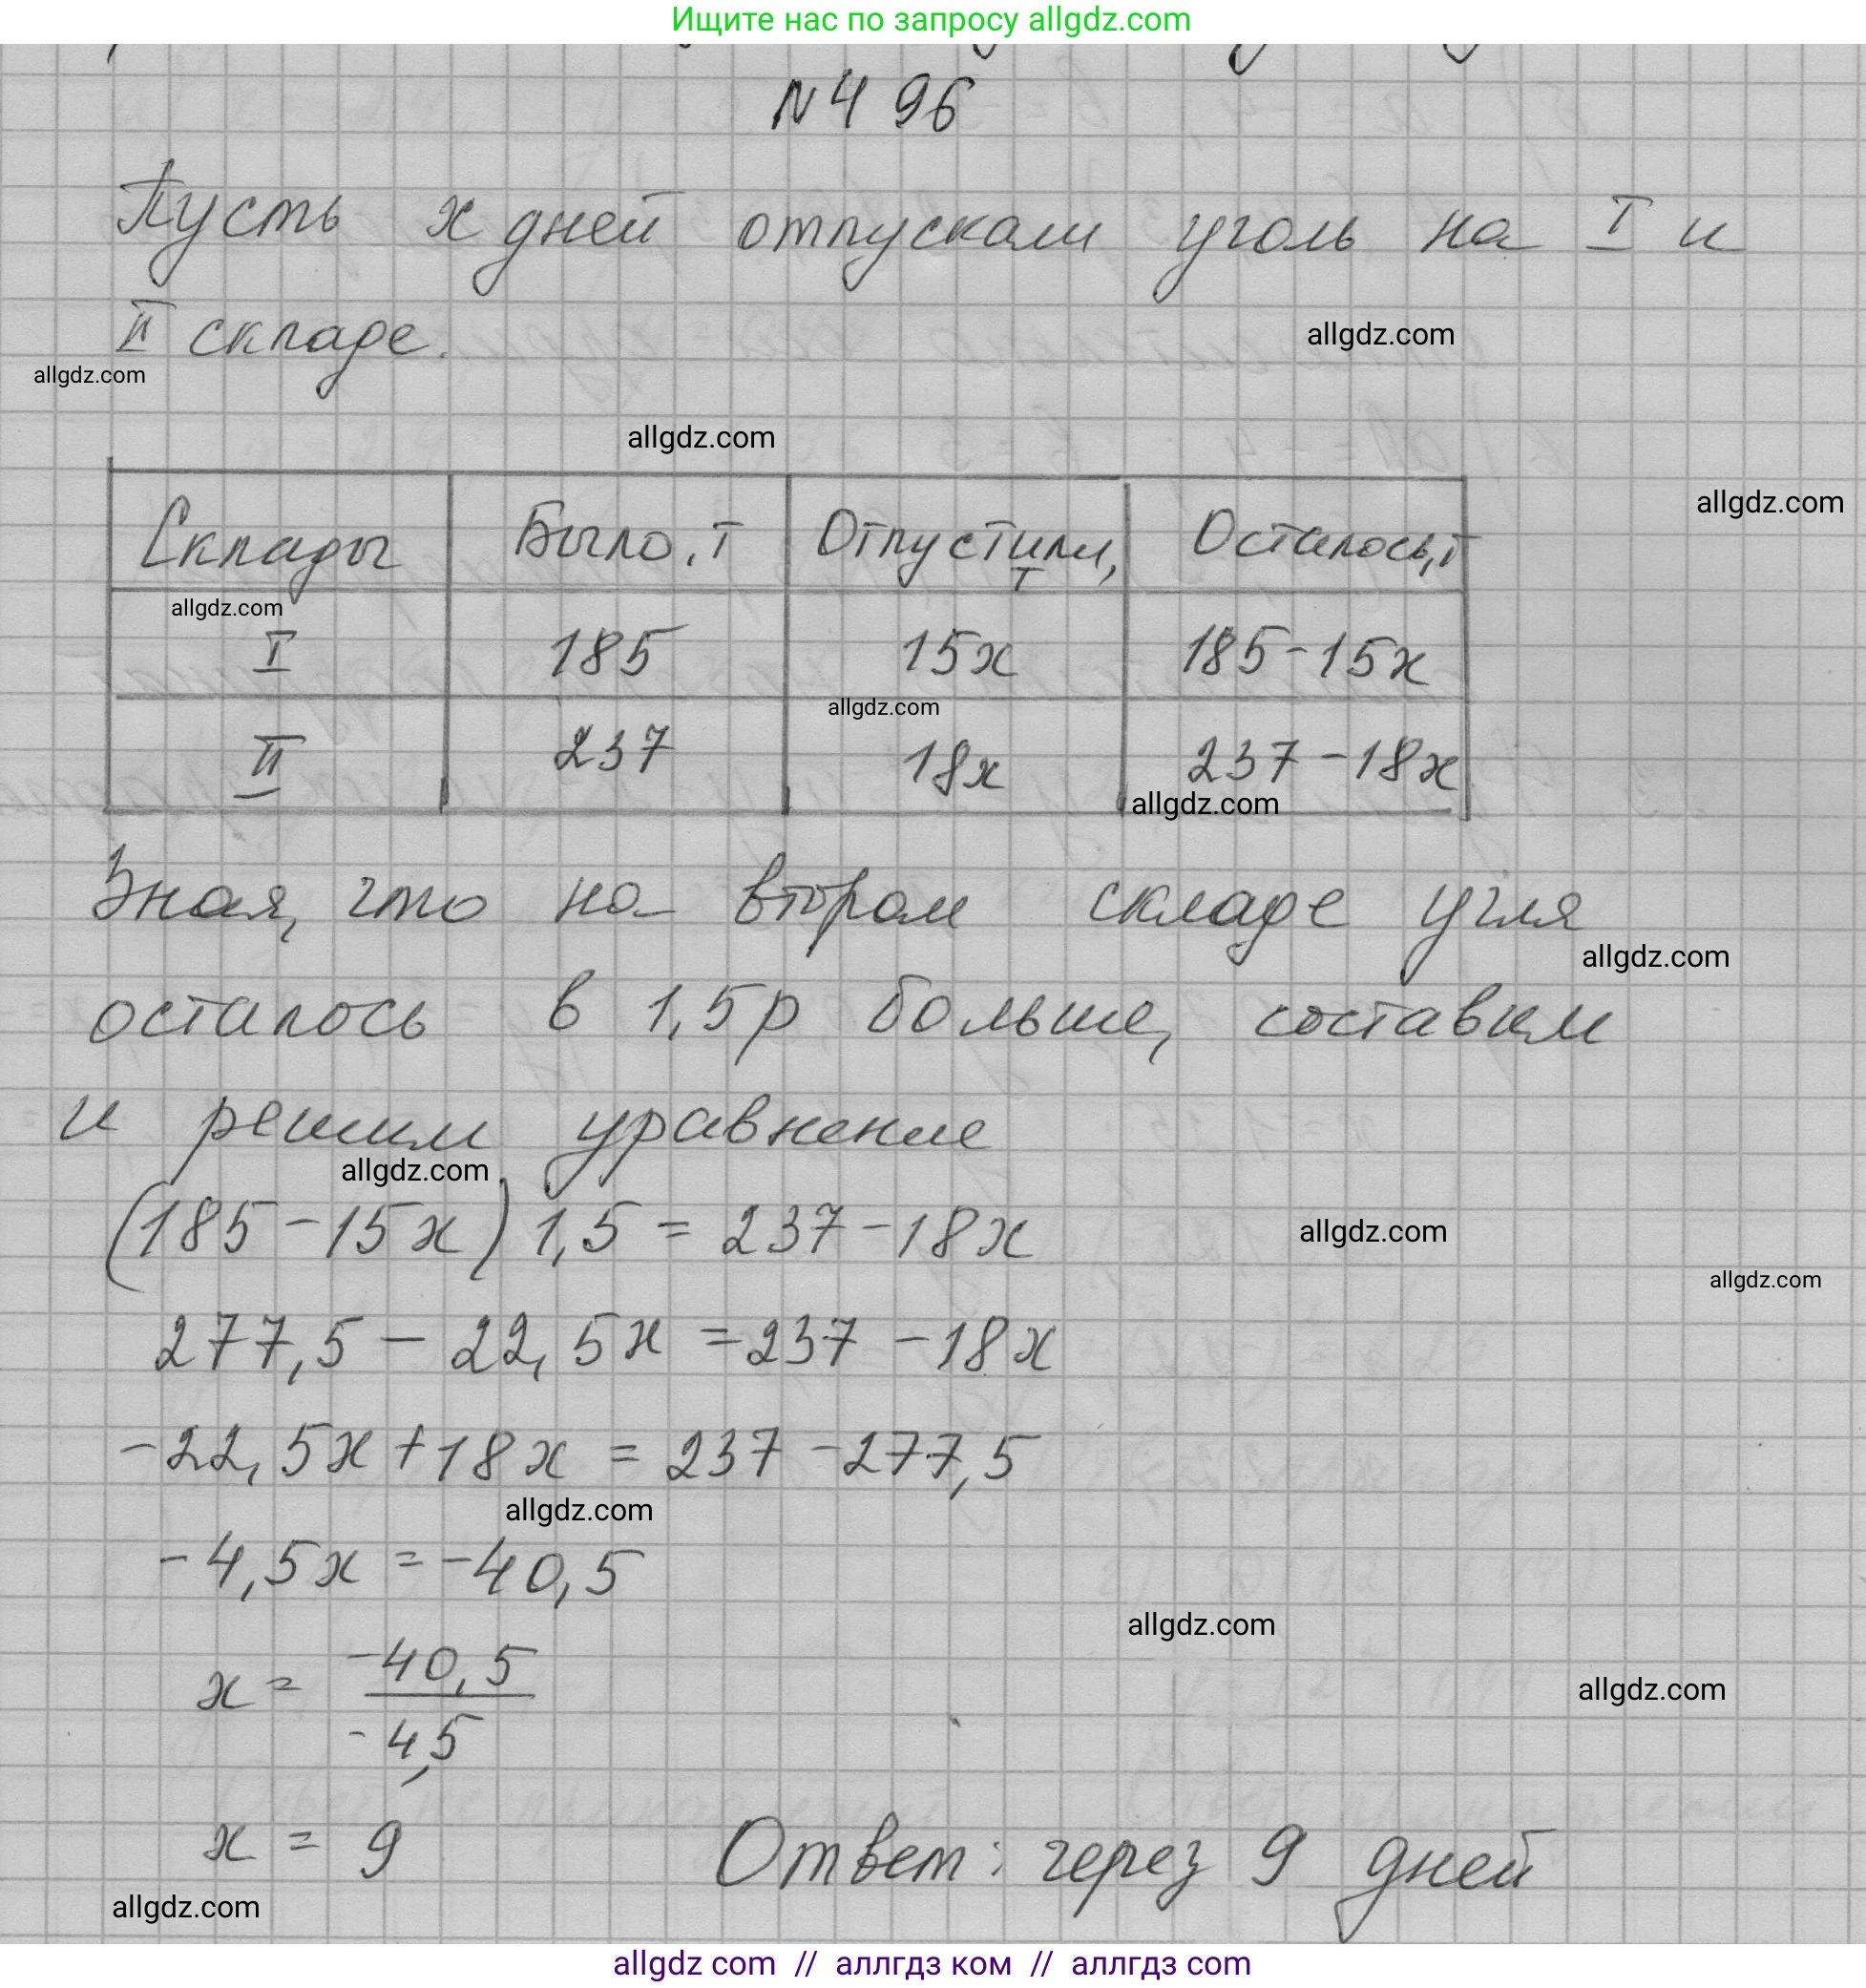 Ищите нас по запросу allgdz.com
N 496
Пусть x дней отпускали уголь на I и
II складе.
allgdz.com
allgdz.com
allgdz.com
allgdz.com
Склады Было, т Отпустили, т Осталось, т
allgdz.com
I 185 15x 185-15x
allgdz.com
II 237 18x 237-18x
allgdz.com
Зная, что на втором складе угля
allgdz.com
осталось в 1,5 р больше, составим
и решим уравнение
allgdz.com
(185-15x) 1,5 = 237-18x
allgdz.com
allgdz.com
277,5 - 22,5x = 237 - 18x
-22,5x + 18x = 237 - 277,5
allgdz.com
-4,5x = -40,5
allgdz.com
x = -40,5 / -4,5
allgdz.com
x = 9 Ответ: через 9 дней
allgdz.com
allgdz com // аллгдз ком // аллгдз com